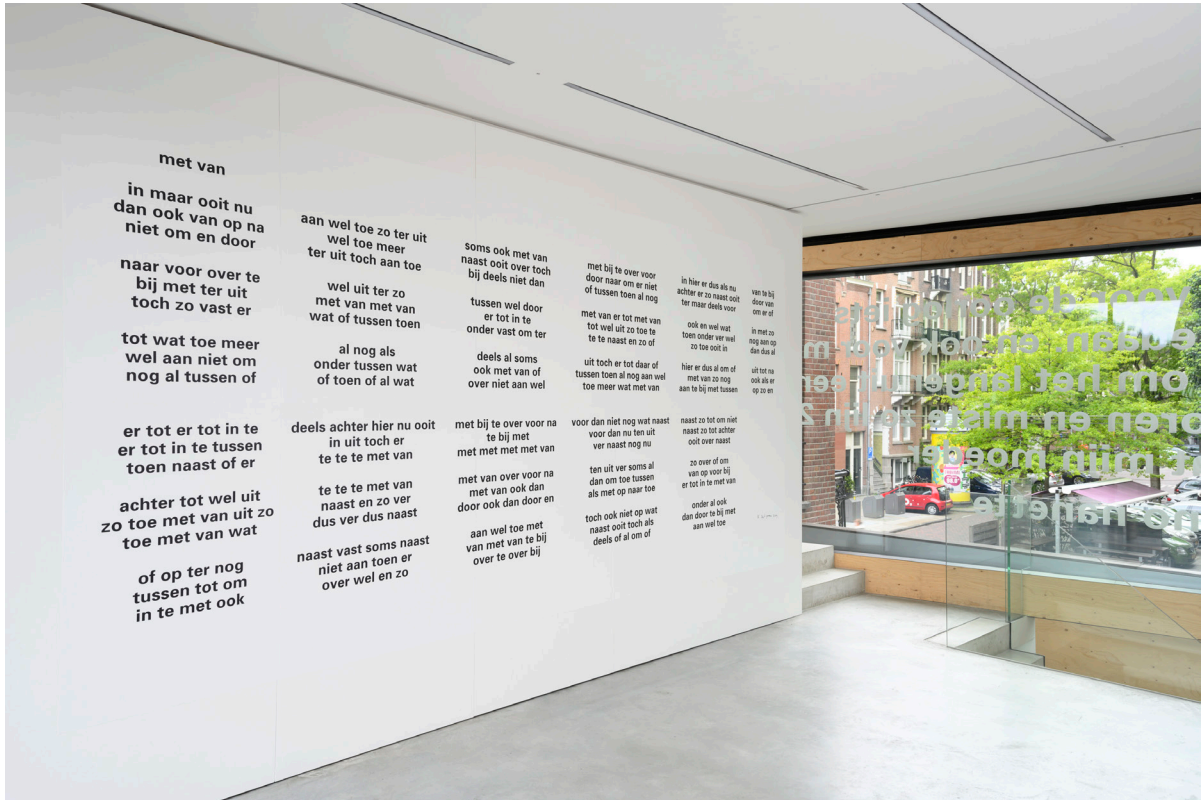 met van
in maar ooit nu
dan ook van op na
niet om en door
naar voor over te
bij met ter uit
toch zo vast er
tot wat toe meer
wel aan niet om
nog al tussen of
er tot er tot in te
er tot in te tussen
toen naast of er
achter tot wel uit
zo toe met van uit zo
toe met van wat
of op ter nog
tussen tot om
in te met ook
aan wel toe zo ter uit
wel toe meer
ter uit toch aan toe
wel uit ter zo
met van met van
wat of tussen toen
al nog als
onder tussen wat
of toen of al wat
deels achter hier nu ooit
in uit toch er
te te te met van
te te te met van
naast en zo ver
dus ver dus naast
naast vast soms naast
niet aan toen er
over wel en zo
soms ook met van
naast ooit over toch
bij deels niet dan
tussen wel door
er tot in te
onder vast om ter
deels al soms
ook met van of
over niet aan wel
met bij te over voor na
te bij met
met met met met van
met van over voor na
met van ook dan
door ook dan door en
aan wel toe met
van met van te bij
over te over bij
met bij te over voor
door naar om er niet
of tussen toen al nog
met van er tot met van
tot wel uit zo toe te
te te naast en zo of
uit toch er tot daar of
tussen toen al nog aan wel
toe meer wat met van
voor dan niet nog wat naast
voor dan nu ten uit
ver naast nog nu
ten uit ver soms al
dan om toe tussen
als met op naar toe
toch ook niet op wat
naast ooit toch als
deels of al om of
in hier er dus als nu
achter er zo naast ooit
ter maar deels voor
ook en wel wat
toen onder ver wel
zo toe ooit in
hier er dus al om of
met van zo nog
aan te bij met tussen
naast zo tot om niet
naast zo tot achter
ooit over naast
zo over of om
van op voor bij
er tot in te met van
onder al ook
dan door te bij met
aan wel toe
van te bij
door van
om er of
in met zo
nog aan op
dan dus al
uit tot na
ook als er
op zo en
voor de oorlog iets
en ook voor
om het langer
en miste ze lijn 2
mijn moeder
nanette